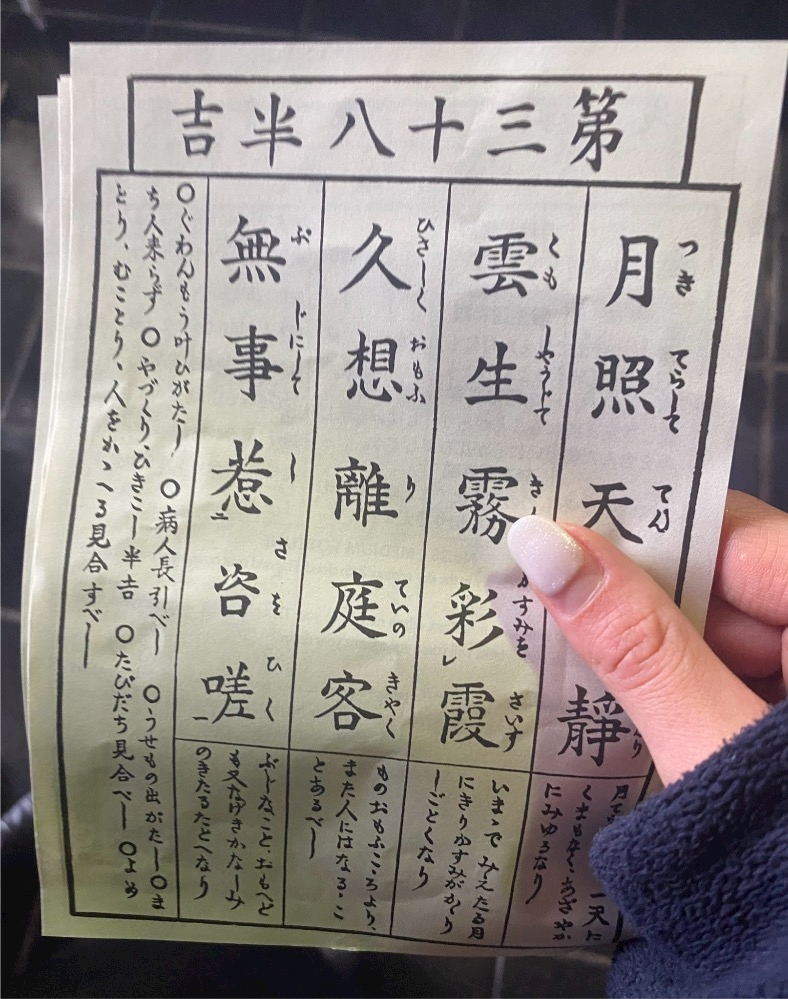 第三十八半吉
つき てらして てん
月照天靜
月て 一天に
くまもなく、あざやか
にみゆるなり
くも しやうじて かすみを さいす
雲生霧彩霞
いまゝで みえたる月
にきりかすみがゝり
しごとくなり
ひさしく おもふ り ていの きやく
久想離庭客
ものおもふこゝろより、
また人にはなるゝこ
とあるべし
ぶ じにして し さ を ひく
無事惹咨嗟
ぶじなこと、おもへど
も又なげきかなしみ
のきたるたとへなり
○ぐわんもう叶ひがたし ○病人長引べし ○うせもの出がたし○ま
ち人来らず ○やづくり、ひきこし半吉 ○たびだち見合べし ○よめ
とり、むことり、人をかゝへる見合すべし